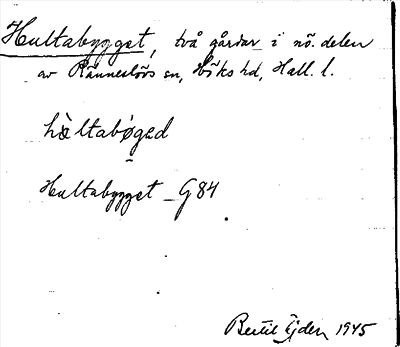 Hultabygget, två gårdar i nö. delen
av Ränneslövs sn, Höks hd, Hall. l.
hùltabýgəd
Hultabygget G84
Bertil Ejder 1945